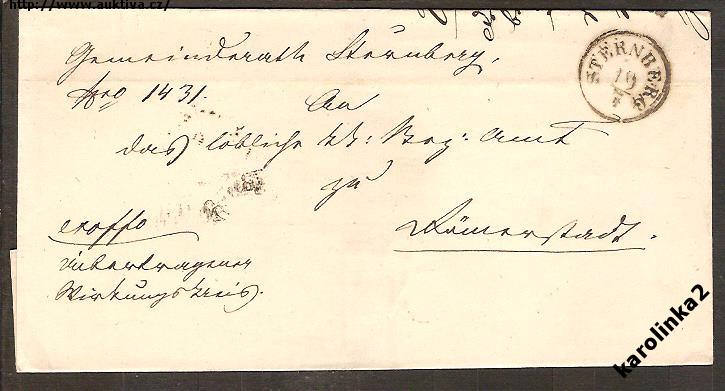 http://www.auktiva.cz/
Gemeinderath Sternberg.
STERNBERG
19
7
No 1431.
An
das löbliche kk: Bez: Amt
zu
Römerstadt.
exoffo
übertragener
Wirkungskreis.
karolinka2